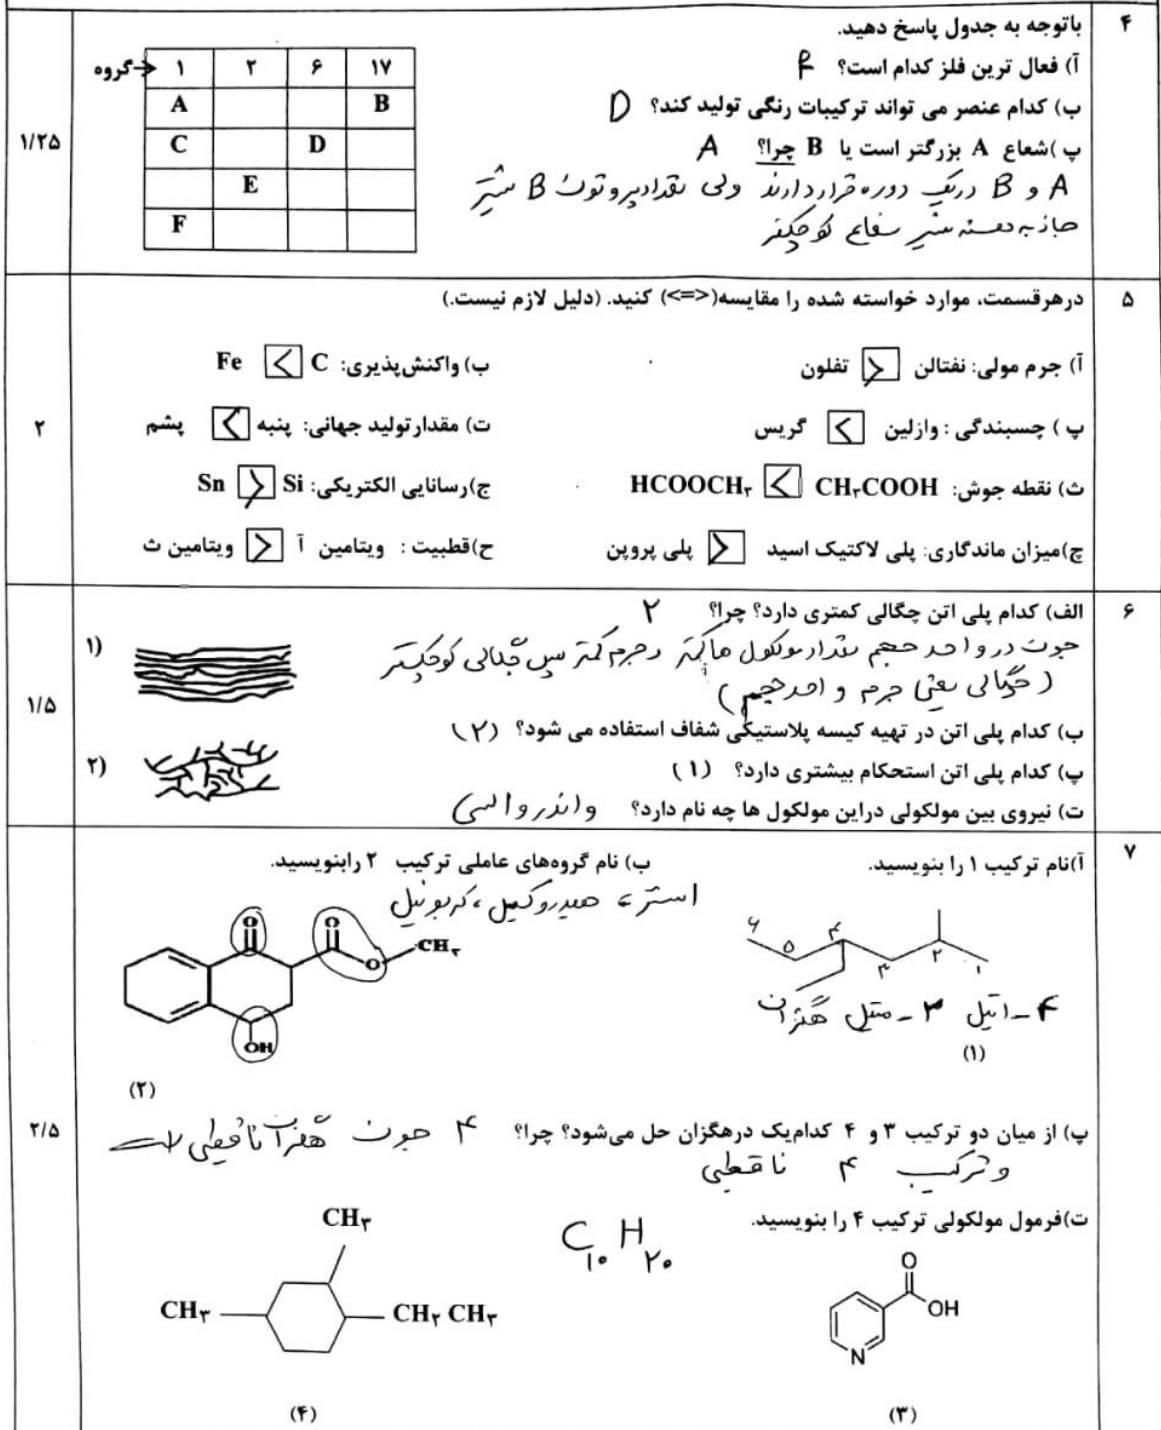 ۴
باتوجه به جدول پاسخ دهید.
آ) فعال ترین فلز کدام است؟ F
ب) کدام عنصر می تواند ترکیبات رنگی تولید کند؟ D
پ )شعاع A بزرگتر است یا B چرا؟ A
A و B دریک دوره قرار دارند ولی تعداد پروتون B بیشتر
جاذبه هسته بیشتر شعاع کوچکتر
گروه → ۱ ۲ ۶ ۱۷
A B
C D
E
F
۱/۲۵
۵
درهرقسمت، موارد خواسته شده را مقایسه(<=>) کنید. (دلیل لازم نیست.)
آ) جرم مولی: نفتالن < تفلون
ب) واکنش‌پذیری: C < Fe
پ ) چسبندگی : وازلین < گریس
ت) مقدارتولید جهانی: پنبه < پشم
ث) نقطه جوش: CH۳COOH < HCOOCH۳
ج)رسانایی الکتریکی: Si > Sn
چ)میزان ماندگاری: پلی لاکتیک اسید > پلی پروپن
ح)قطبیت : ویتامین آ > ویتامین ث
۲
۶
الف) کدام پلی اتن چگالی کمتری دارد؟ چرا؟ ۲
چون در واحد حجم تعداد مولکول ها کمتر و جرم کمتر پس چگالی کوچکتر
(چگالی یعنی جرم واحد حجم)
ب) کدام پلی اتن در تهیه کیسه پلاستیکی شفاف استفاده می شود؟ (۲)
پ) کدام پلی اتن استحکام بیشتری دارد؟ (۱)
ت) نیروی بین مولکولی دراین مولکول ها چه نام دارد؟ واندروالسی
۱)
۲)
۱/۵
۷
آ)نام ترکیب ۱ را بنویسید.
ب) نام گروه‌های عاملی ترکیب ۲ رابنویسید.
استر، هیدروکسیل، کربونیل
۶ ۵ ۴ ۳ ۲ ۱
۴-اتیل ۲-متیل هگزان
(۱)
O O O CH۳
OH
(۲)
پ) از میان دو ترکیب ۳ و ۴ کدام‌یک درهگزان حل می‌شود؟ چرا؟ ۴ چون هگزان ناقطبی است
و ترکیب ۴ ناقطبی
ت)فرمول مولکولی ترکیب ۴ را بنویسید.
C۱۰H۲۰
CH۳
CH۳ CH۲ CH۳
(۴)
O
OH
N
(۳)
۲/۵